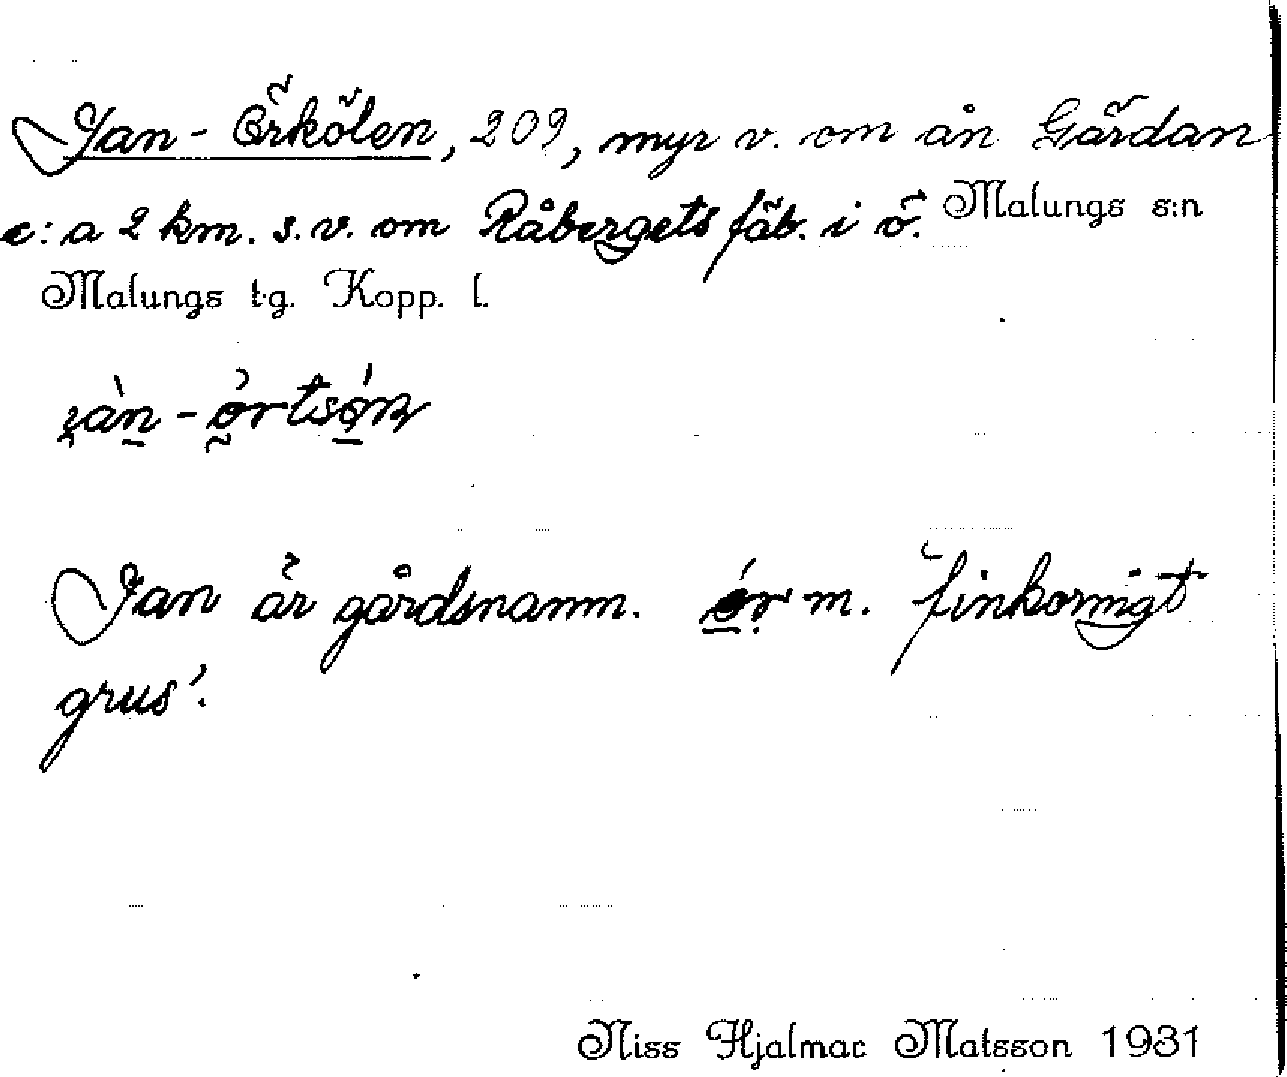 Jan-Örkölen, 209, myr v. om ån Gärdan
c:a 2 km. s.v. om Råbergets fäb. i ö. Malungs s:n
Malungs tg. Kopp. l.
Jan är gårdsnamn. m. 'finkornigt
grus'.
Niss Hjalmar Matsson 1931